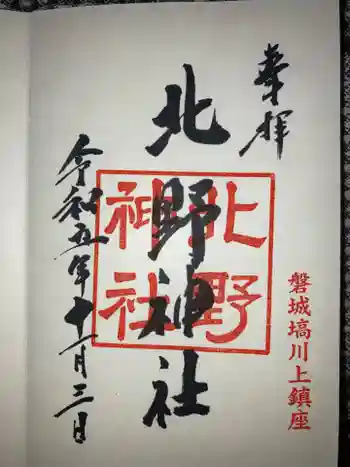 奉拝
磐城塙川上鎮座
北野神社
北野
神社
令和五年十一月三日